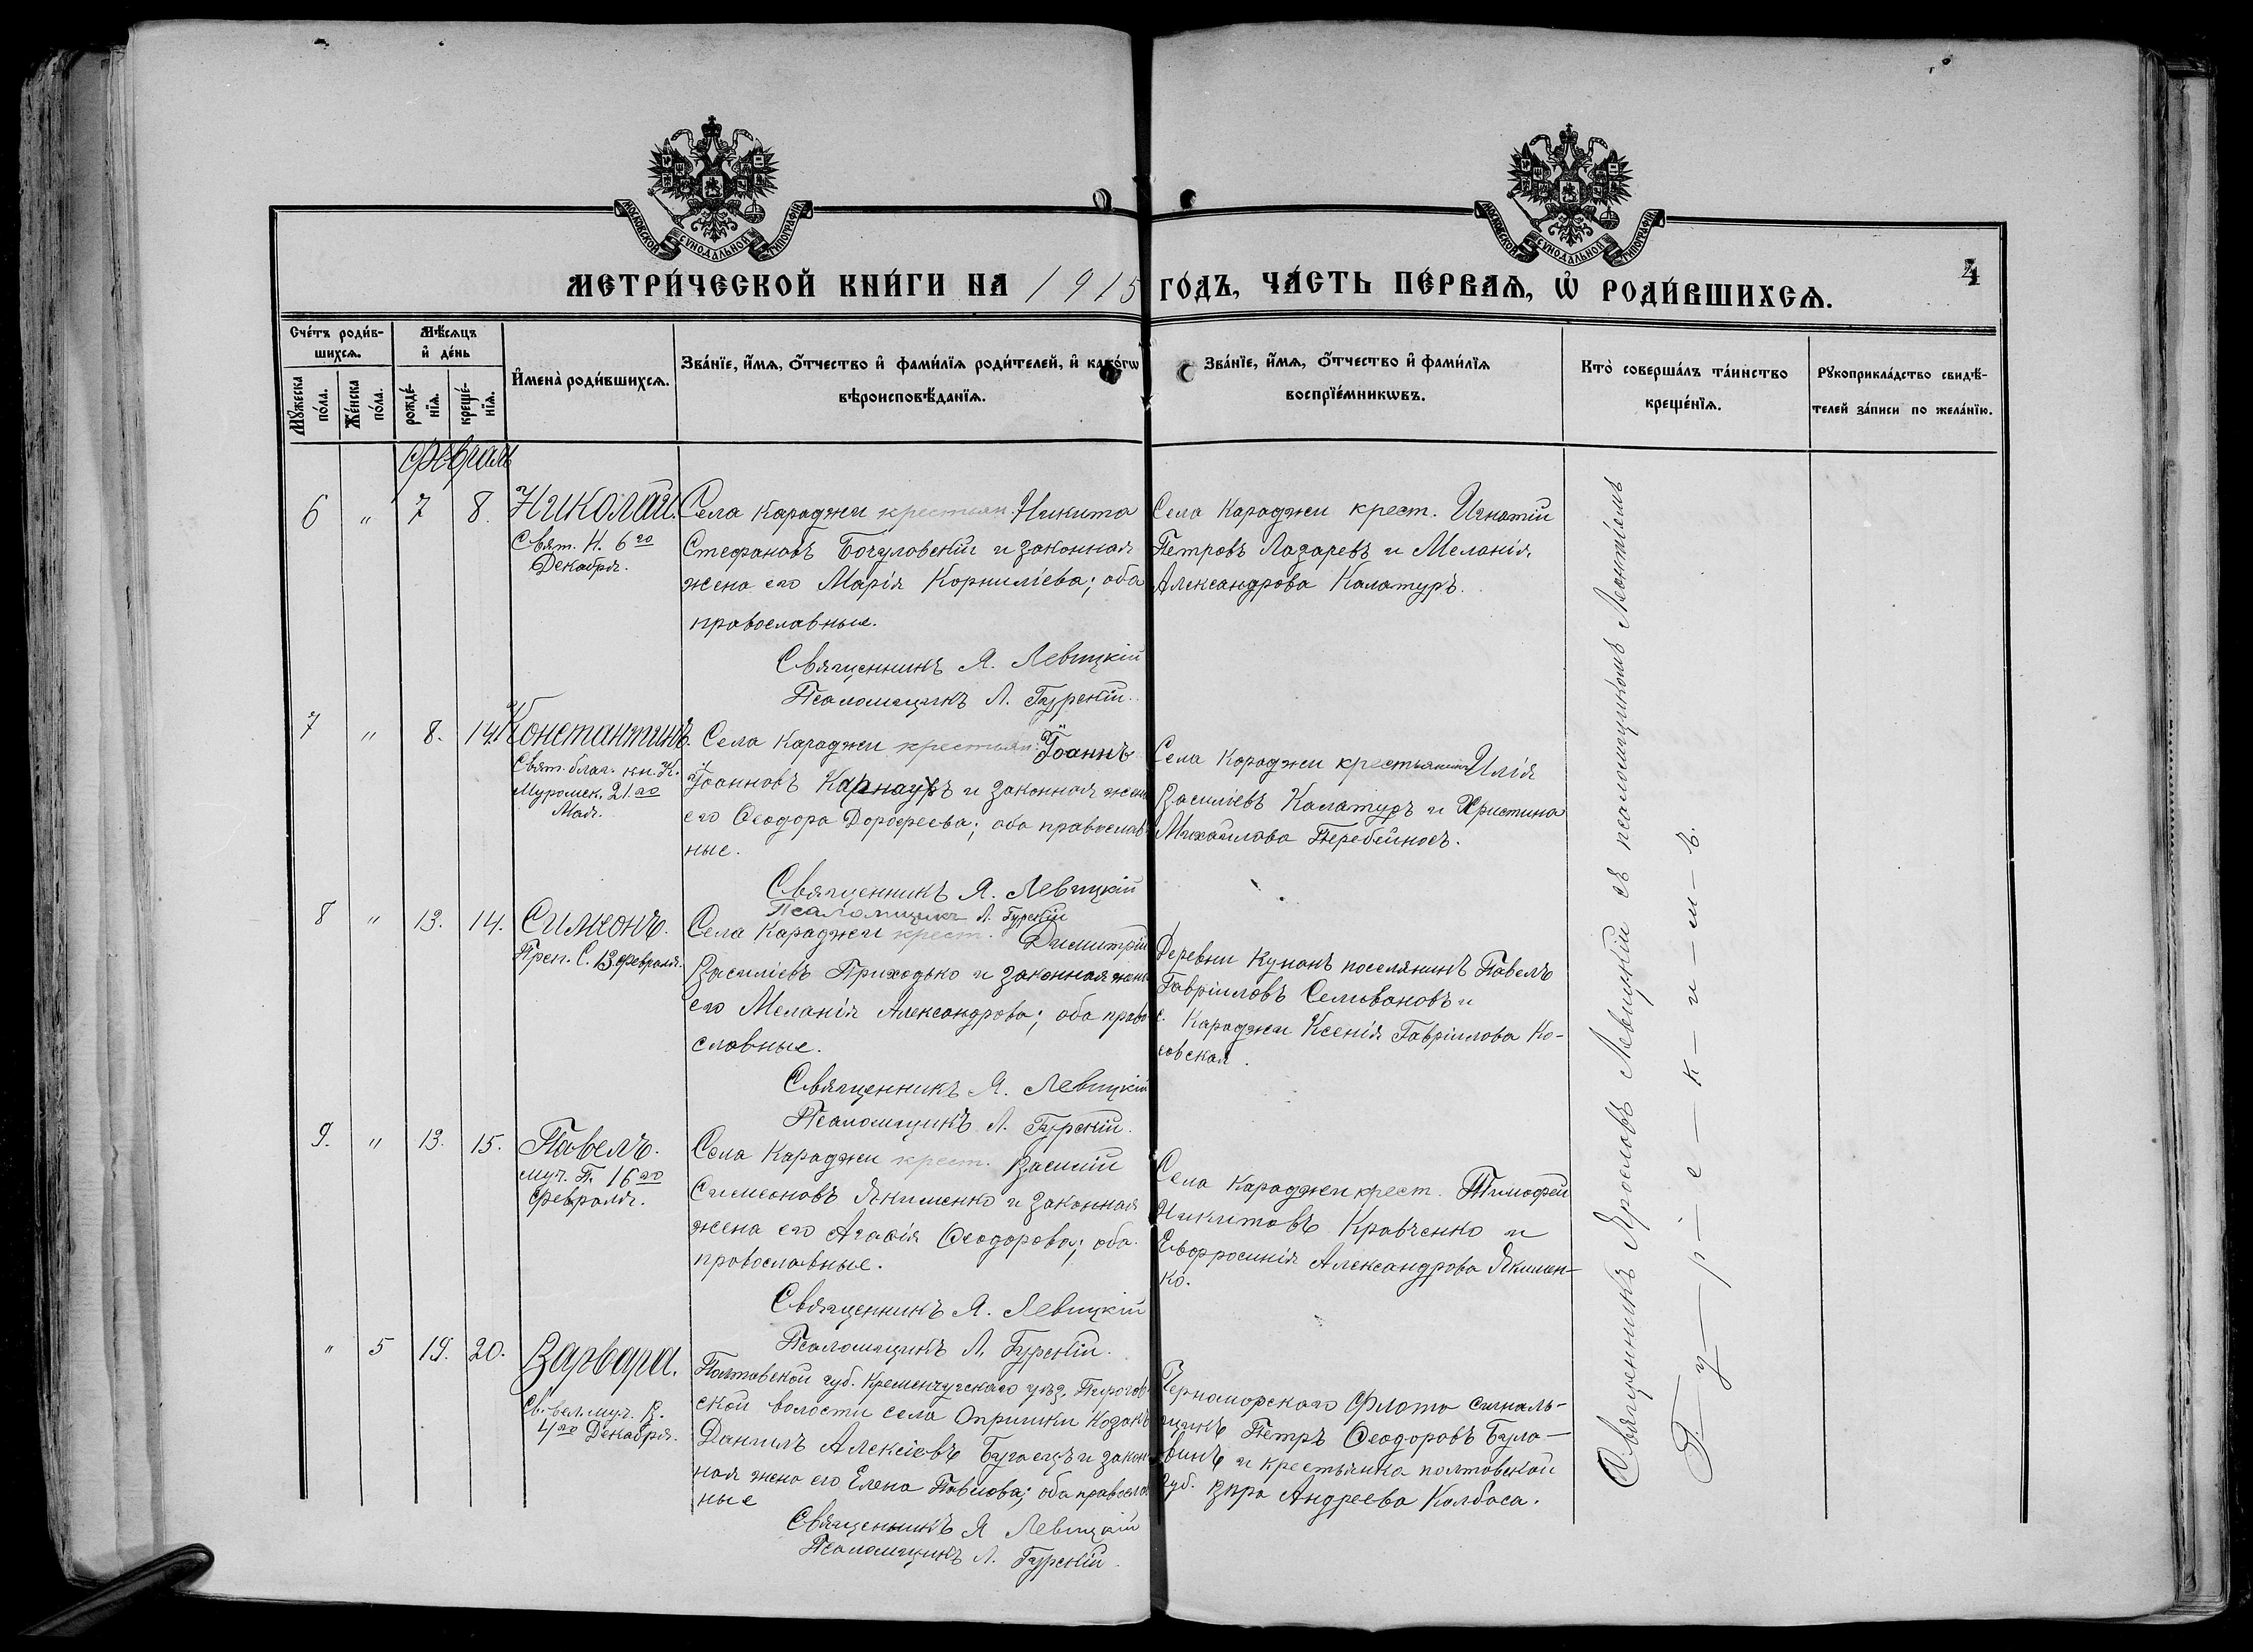 МОСКОВСКОЙ СѴНОДАЛЬНОЙ ТИПОГРАФІИ
МОСКОВСКОЙ СѴНОДАЛЬНОЙ ТИПОГРАФІИ
МЕТРИ́ЧЕСКОЙ КНИ́ГИ НА 1915 ГО́ДЪ, ЧА́СТЬ ПЕ́РВАѦ, Ѡ҆ РОДИ́ВШИХСѦ.
4
Сче́тъ роди́в-
шихсѧ.
Мѣ́сѧцъ
и҆ де́нь
Мꙋ́жеска
по́ла.
Же́нска
по́ла.
рожде́-
нїѧ.
креще́-
нїѧ.
И҆мена̀ роди́вшихсѧ.
Зва́нїе, и҆́мѧ, ѻ҆́тчество и҆ фами́лїѧ роди́телей, и҆ како́гѡ
вѣроисповѣ́данїѧ.
Зва́нїе, и҆́мѧ, ѻ҆́тчество и҆ фами́лїѧ
воспрїе́мникѡвъ.
Кто̀ соверша́лъ та́инство
креще́нїѧ.
Рꙋкоприкла́дство свидѣ́-
телей за́писи по жела́нїю.
Февраль
6 " 7 8. Николай.
Свят. Н. 6го
Декабря.
Села Караджи крестьян. Никита
Стефановъ Бочуловскій и законная
жена его Марія Корниліева; оба
православные.
Священникъ Я. Левицкій
Псаломщикъ Л. Гурскій.
Села Караджи крест. Игнатій
Петровъ Лазаревъ и Меланія
Александрова Калатуръ.
7 " 8. 14. Константинъ.
Свят. благ. кн. К.
Муромск. 21го
Мая.
Села Караджи крестьян. Іоаннъ
Іоанновъ Карнаухъ и законная жена
его Ѳеодора Дорофеева; оба православ
ные.
Священникъ Я. Левицкій
Псаломщикъ Л. Гурскій
Села Караджи крестьянинъ Илія
Василіевъ Калатуръ и Христина
Михаилова Перебейносъ.
8 " 13. 14. Симеонъ.
Преп. С. 13 февраля.
Села Караджи крест. Димитрій
Василіевъ Приходько и законная жена
его Меланія Александрова; оба право
славные.
Священникъ Я. Левицкій
Псаломщикъ Л. Гурскій.
Деревни Кунанъ поселянинъ Павелъ
Гавріиловъ Селивановъ и
с. Караджи Ксенія Гавріилова Ко-
совская.
9. " 13. 15. Павелъ.
муч. П. 16го
Февраля.
Села Караджи крест. Василій
Симеоновъ Якименко и законная
жена его Агафія Ѳеодорова; оба
православные.
Священникъ Я. Левицкій
Псаломщикъ Л. Гурскій.
Села Караджи крест. Тимофей
Никитовъ Кравченко и
Евфросинія Александрова Якимен-
ко.
" 5 19. 20. Варвара.
Св. вел. муч. В.
4го Декабря.
Полтавской губ. Кременчугскаго уѣз. Пирогов
ской волости села Опришки козакъ
Даніилъ Алексіевъ Бугаецъ и закон
ная жена его Елена Павлова; оба правосла
ные
Священникъ Я Левицкій
Псаломщикъ Л. Гурскій.
Черноморскаго Флота сигналь-
щикъ Петръ Ѳеодоровъ Була-
винъ и крестьянка полтавской
губ. Вѣра Андреева Колбаса.
Священникъ Ярославъ Левицкій съ псаломщикомъ Леонтіемъ
Г—у—р—і—е—к—и—м—ъ.